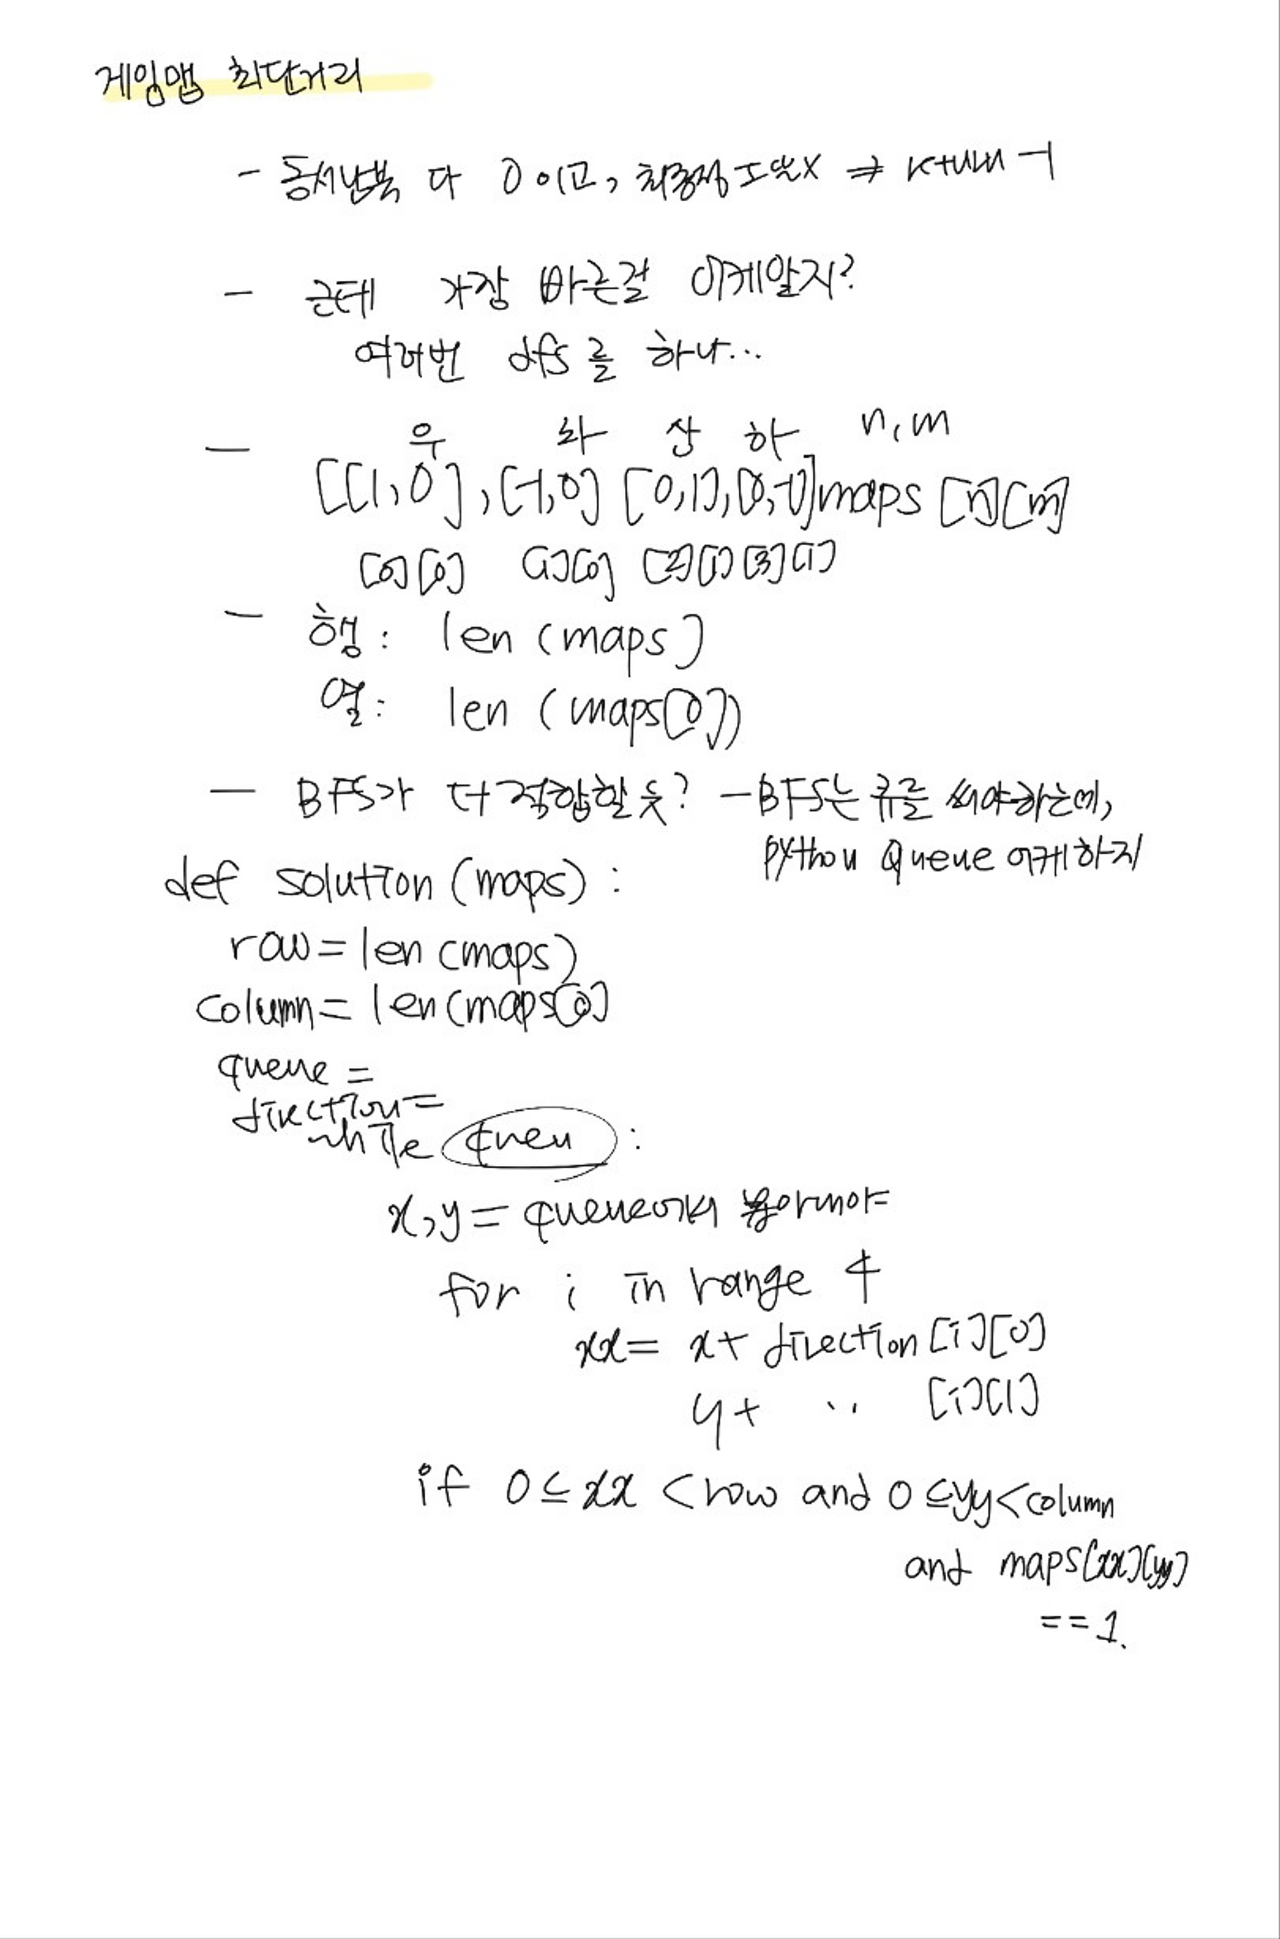 게임맵 최단거리
- 동서남북 다 0이고, 최종점도 또 x ⇒ return -1
- 근데 가장 빠른걸 어케알지?
여러번 dfs를 하나...
우 좌 상 하 n, m
- [[1,0],[-1,0] [0,1],[0,-1] maps [n][m]
[0][0] [1][0] [2][1] [3][1]
- 행: len (maps)
열: len (maps[0])
- BFS가 더 적합할 듯? - BFS는 큐를 써야하는데,
python Queue 어케하지
def solution (maps) :
row = len (maps)
column = len (maps[0]
queue =
direction =
while queu :
x, y = queue에서 뽑아내야
for i in range 4
xx = x + direction [i][0]
y + '' [i][1]
if 0 ≤ xx < row and 0 ≤ yy < column
and maps[xx][yy]
== 1.